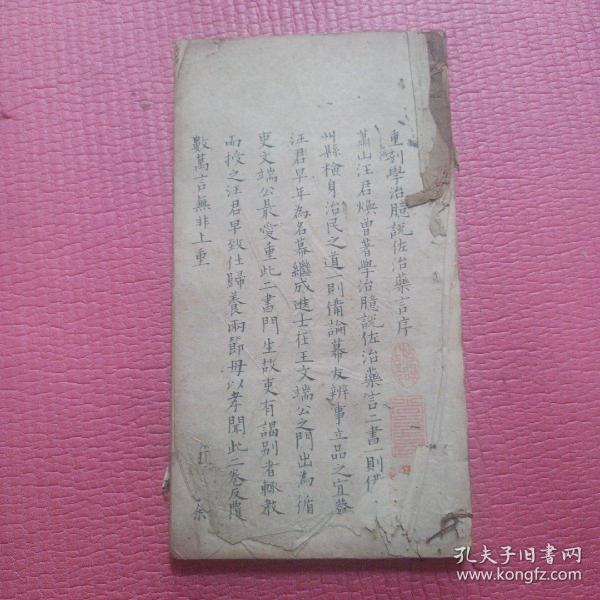 重刋學治臆說佐治藥言序
蕭山汪君煥曾著學治臆說佐治藥言二書一則俻
州縣檢身治民之道一則備論幕友辨事立品之宜蓋
汪君早年為名幕繼成進士從王文端公之門出為循
吏文端公㝡愛重此二書門生故吏有謁别者輒教
而授之汪君早致仕歸養兩節母以孝聞此二卷反覆
數萬言無非上重
孔夫子旧书网
www.kongfz.com